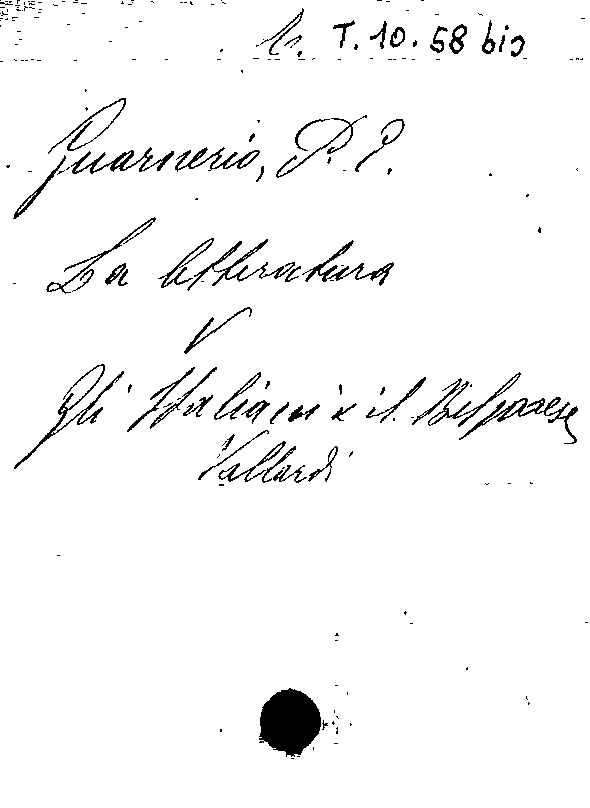 T. 10. 58 bis
Guarnerio, P. E.
La letteratura
V
Gli Italiani x il Bel paese
Vallardi